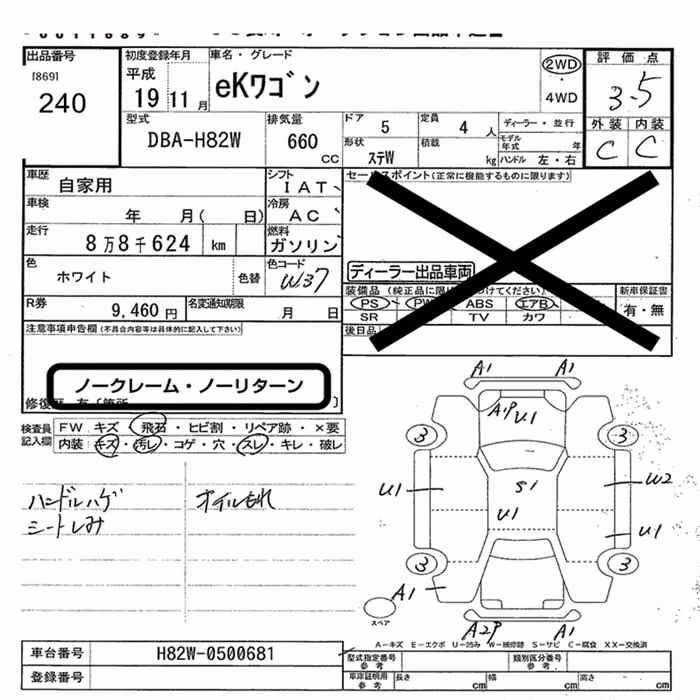 出品番号
[869]
240
初度登録年月
平成
19 11 月
車名・グレード
eKワゴン
2WD
・
4WD
評価点
3.5
外装 内装
C C
型式
DBA-H82W
排気量
660
CC
ドア 5
形状
ステW
定員 4 人
積載 kg
ディーラー・並行
モデル年式 年
ハンドル 左・右
車歴
自家用
シフト
IAT
車検
年 月( 日)
冷房
AC
走行
8万8千624 km
燃料
ガソリン
色
ホワイト
色替
色コード
W37
R券
9,460円
名変通知期限
月 日
セールスポイント(正常に機能するものに限ります)
ディーラー出品車両
装備品
PS PW ABS エアB
SR TV カワ
新車保証書
有・無
後日品
注意事項申告欄(不具合内容等は具体的に記入して下さい)
ノークレーム・ノーリターン
検査員記入欄
FW キズ・飛石・ヒビ割・リペア跡・×要
内装・キズ・汚レ・コゲ・穴・スレ・キレ・破レ
ハンドルハゲ
シートしみ
オイルもれ
A1 A1
A1P U1
3 3
U1 S1 W2
U1 U1
3 3
A1
スペア
A2P A1
A-キズ E-エクボ U-凹み W-補修跡 S-サビ C-腐食 XX-交換済
車台番号 H82W-0500681
登録番号
型式指定番号
参考
類別区分番号
参考
車庫証明用
参考
長さ cm 幅 cm 高さ cm